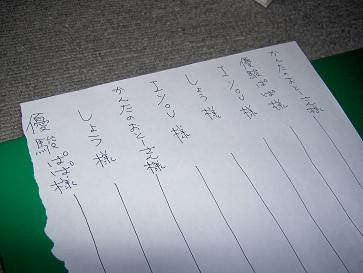 かんたのおとーさん様
優駿ぱぱ様
エンzo 様
しょう 様
エンzo 様
かんたのおとーさん様
しょう 様
優駿ぱぱ様